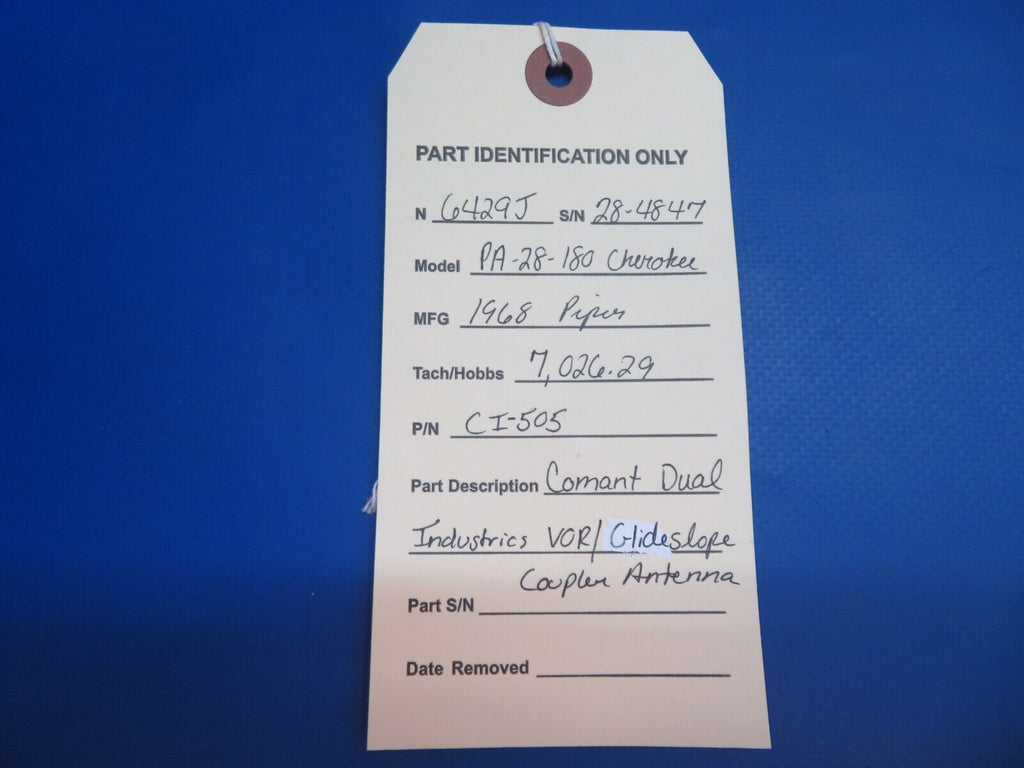 PART IDENTIFICATION ONLY
N 6429J S/N 28-4847
Model PA-28-180 Cherokee
MFG 1968 Piper
Tach/Hobbs 7,026.29
P/N CI-505
Part Description Comant Dual
Industries VOR/Glideslope
Coupler Antenna
Part S/N
Date Removed